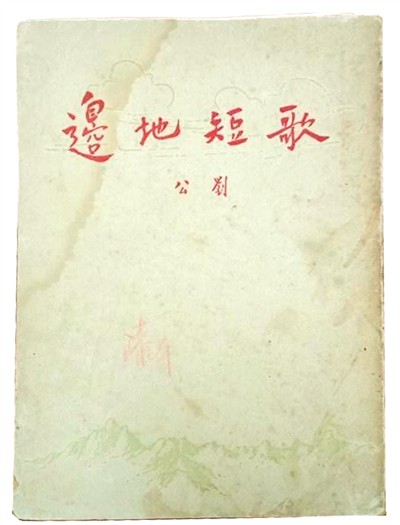 邊地短歌
公劉